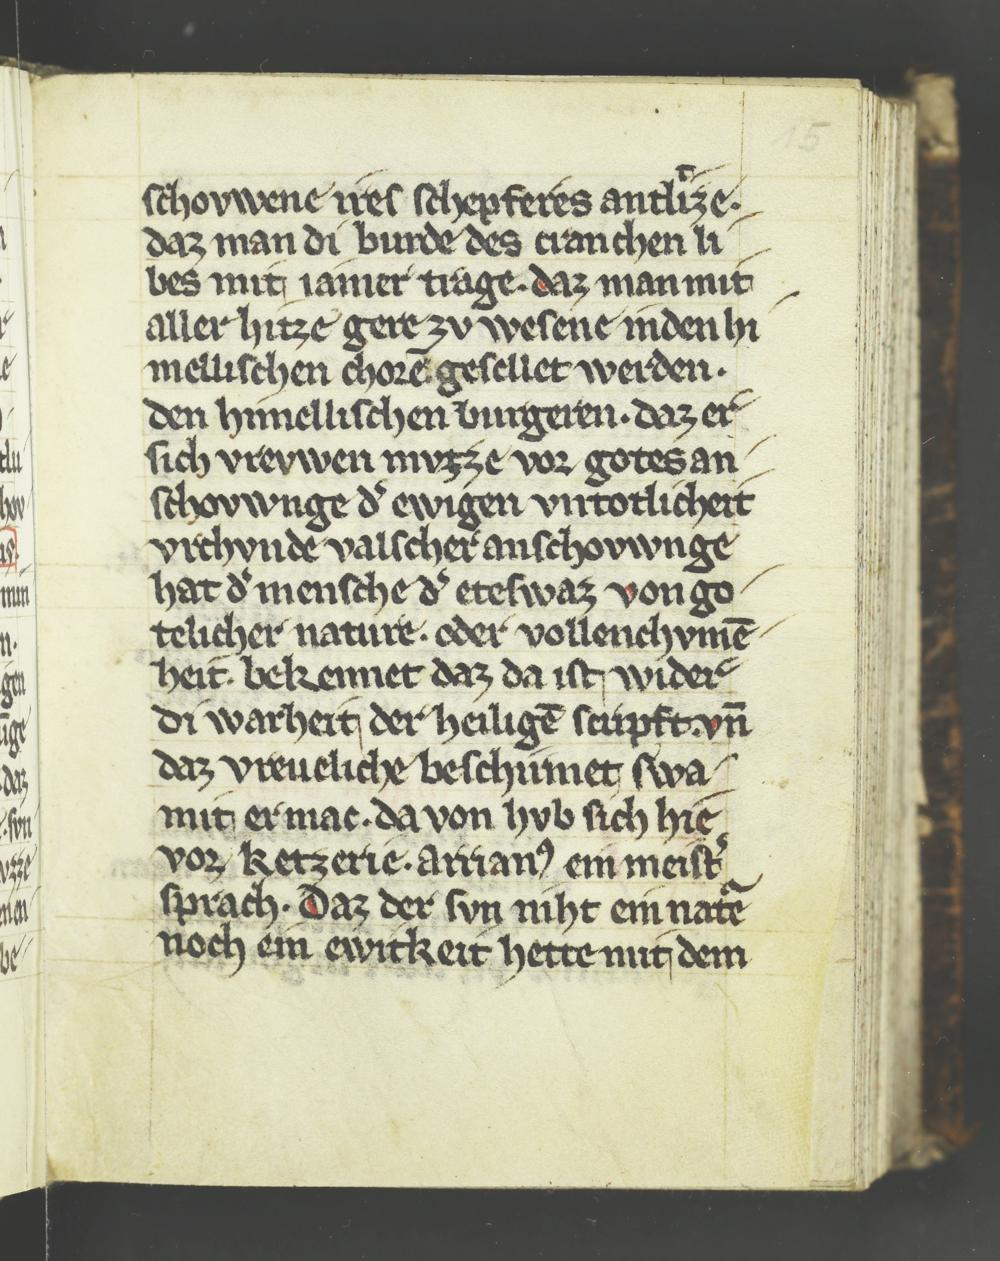 15
schovwene ires schepferes antlize.
daz man di burde des cranchen li
bes mit iamer trage. daz man mit
aller hitze gere zv wesene in den hi
mellischen chorē gesellet werden.
den himellischen burgeren. daz er
sich vrevwen mvzze vor gotes an
schovwnge d͛ ewigen vntotlicheit
vrchvnde valscher anschovwnge
hat d͛ mensche d͛ eteswaz von go
telicher nature. oder vollenchvmē
heit. bekennet daz da ist wider
di warheit der heiligē scripft. vn̄
daz vreueliche beschirmet swa
mit er mac. da von hvb sich hie
vor ketzerie. Arrianꝰ ein meist͛
sprach. Daz der svn niht ein natᵃe
noch ein ewitkeit hette mit dem